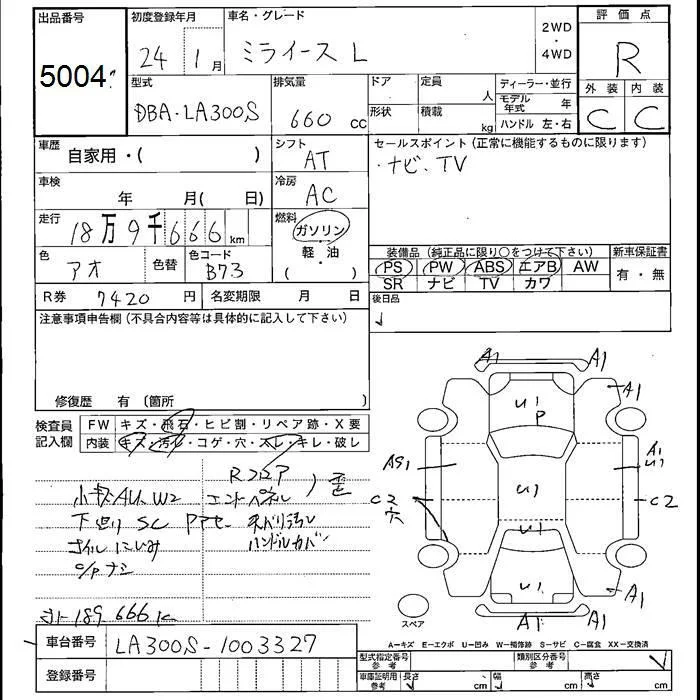 出品番号
5004
初度登録年月
24 1月
車名・グレード
ミライース L
2WD
・
4WD
評価点
R
外装 内装
C C
型式
DBA-LA300S
排気量
660 cc
ドア
形状
定員 人
積載 kg
ディーラー・並行
モデル年式 年
ハンドル 左・右
車歴
自家用・( )
シフト
AT
セールスポイント(正常に機能するものに限ります)
・ナビ、TV
車検
年 月( 日)
冷房
AC
走行
18万9千666km
燃料
ガソリン
軽・油
( )
色
アオ
色替
色コード
B73
装備品(純正品に限り○をつけて下さい)
PS PW ABS エアB AW
SR ナビ TV カワ
新車保証書
有・無
R券 7420円
名変期限 月 日
後日品
注意事項申告欄(不具合内容等は具体的に記入して下さい)
修復歴 有〔箇所 〕
検査員
記入欄
FW キズ・飛石・ヒビ割・リペア跡・X要
内装 キズ・汚レ・コゲ・穴・スレ・キレ・破レ
Rフロア
エンドパネル
歪
小キズAU W2
下廻り SC
オイルにじみ
ハンドルカバー
O/Pナシ
189.666K
車台番号 LA300S-1003327
登録番号
A1 A1
A1
U1
P
AS1
A1
U1
C2
穴
U1
C2
U1
U1
A1
A1 A1
スペア
A=キズ E=エクボ U=凹み W=補修跡 S=サビ C=腐食 XX=交換済
型式指定番号
参考
類別区分番号
参考
車庫証明用
参考
長さ cm 幅 cm 高さ cm